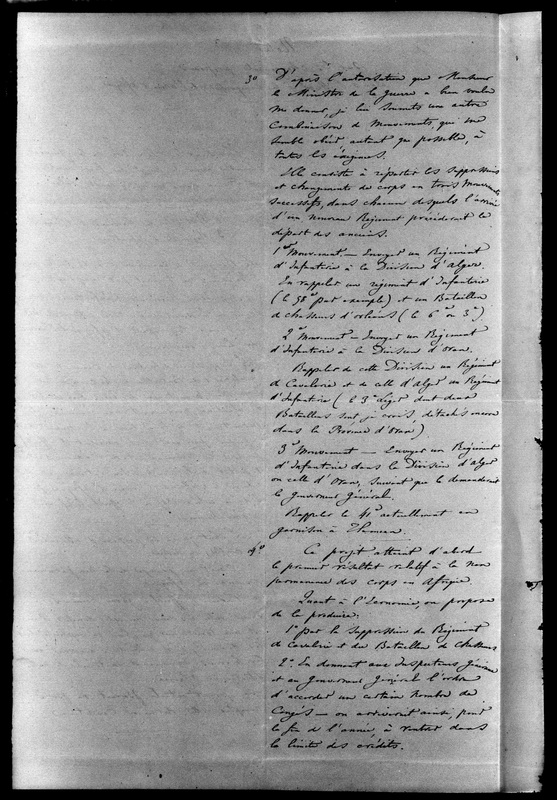 3º D'après l'autorisation que Monsieur
le Ministre de la guerre a bien voulu
me donner, je lui soumets une autre
Combinaison de Mouvements, qui me
semble obéir autant que possible, à
toutes les exigences.
Elle consiste à répartir les suppressions
et changements de corps en trois mouvements
successifs, dans chacun desquels l'arrivée
d'un nouveau Régiment précéderait le
départ des anciens.
1er Mouvement. — Envoyer un Régiment
d'Infanterie à la Division d'Alger.
En rappeler un régiment d'Infanterie
(le 58e par exemple) et un Bataillon
de chasseurs d'orléans (le 6e ou 3e)
2e Mouvement — Envoyer un Régiment
d'Infanterie à la Division d'Oran.
Rappeler de cette Division un Régiment
de Cavalerie et de celle d'Alger un Régiment
d'Infanterie (le 3e Léger dont deux
Bataillons sont, je crois, détachés encore
dans la Province d'Oran)
3e Mouvement — Envoyer un Régiment
d'Infanterie dans la Division d'Alger
ou celle d'Oran, suivant que le demanderait
le Gouverneur Général.
Rappeler le 41e actuellement en
garnison à Tlemcen.
4º Ce projet atteint d'abord
le premier résultat relatif à la non
permanence des corps en Afrique.
Quant à l'Economie, on propose
de la produire:
1º par la suppression du Régiment
de Cavalerie et du Bataillon de chasseurs
2º En donnant aux Inspecteurs Généraux
et au Gouverneur Général l'ordre
d'accorder un certain nombre de
Congés — on arriverait ainsi, pour
la fin de l'année, à rentrer dans
la limite des crédits.